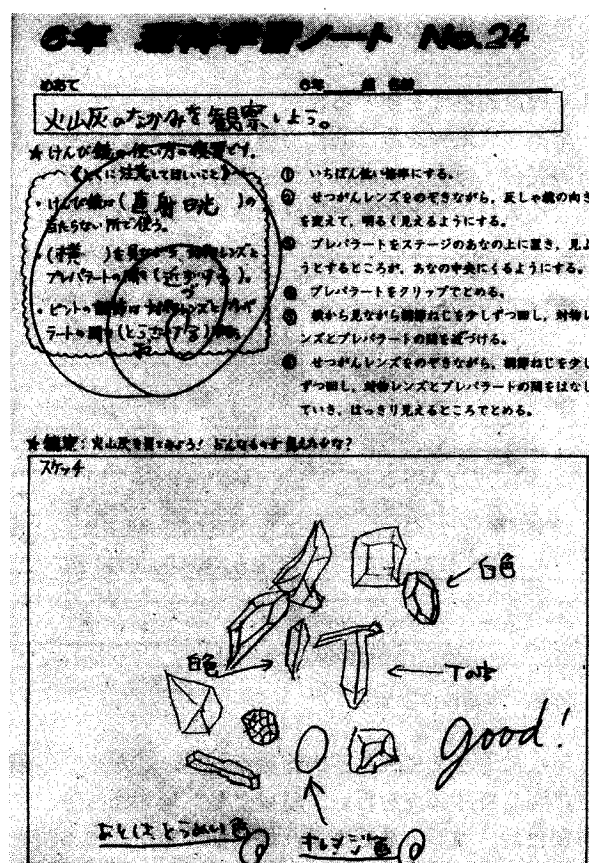 6年 理科学習ノート No.24
めあて 6年 組 名前
火山灰のなかみを観察しよう。
★けんび鏡の使い方の復習です。
《とくに注意してほしいこと》
・けんび鏡は(直射日光)の
当たらない所で使う。
・(横)を見ながら、対物レンズと
プレパラートの間を(近づける)。
・ピントの調節は対物レンズとプレパ
ラートの間を
① いちばん低い倍率にする。
② せつがんレンズをのぞきながら、反しゃ鏡の向き
を変えて、明るく見えるようにする。
③ プレパラートをステージのあなの上に置き、見よ
うとするところが、あなの中央にくるようにする。
④ プレパラートをクリップでとめる。
⑤ 横から見ながら調節ねじを少しずつ回し、対物レ
ンズとプレパラートの間を近づける。
⑥ せつがんレンズをのぞきながら、調節ねじを少し
ずつ回し、対物レンズとプレパラートの間をはなし
ていき、はっきり見えるところでとめる。
★観察:火山灰を見てみよう! どんなものが見えたかな?
スケッチ
白色
白色
Tの字
good!
あとはとうめい色
オレンジ色